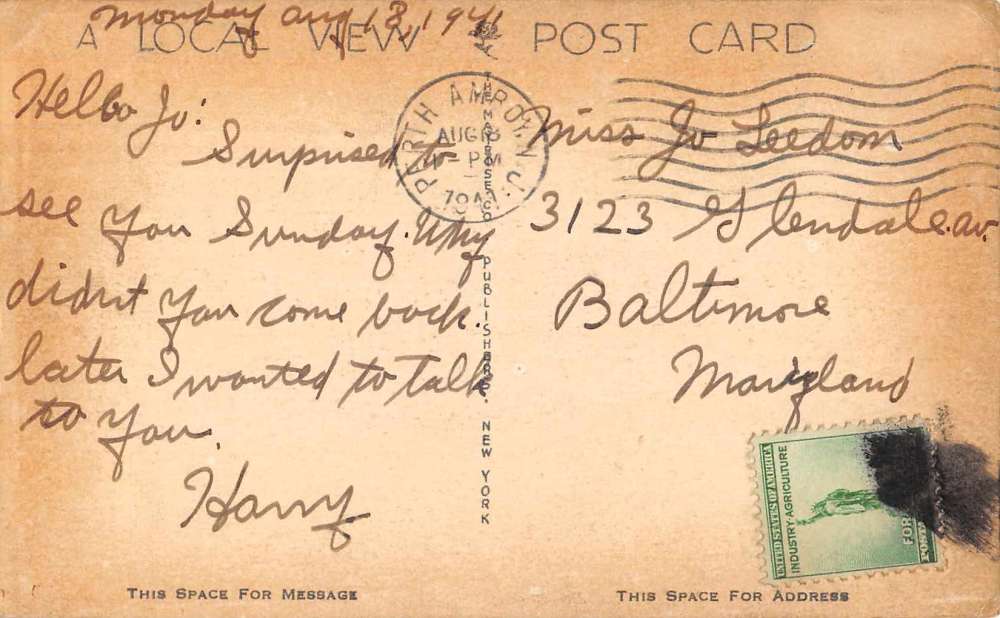 Monday Aug 18, 1941
A LOCAL VIEW POST CARD
Hello Jo:
Surprised to
see you Sunday. Why
didnt you come back.
later I wanted to talk
to you.
Harry
THIS SPACE FOR MESSAGE
PERTH AMBOY, N.J.
AUG 18
PM
1941
THE MAYROSE CO. PUBLISHERS. NEW YORK
Miss Jo Leedom
3123 Glendale av.
Baltimore
Maryland
UNITED STATES OF AMERICA
INDUSTRY·AGRICULTURE
FOR
THIS SPACE FOR ADDRESS